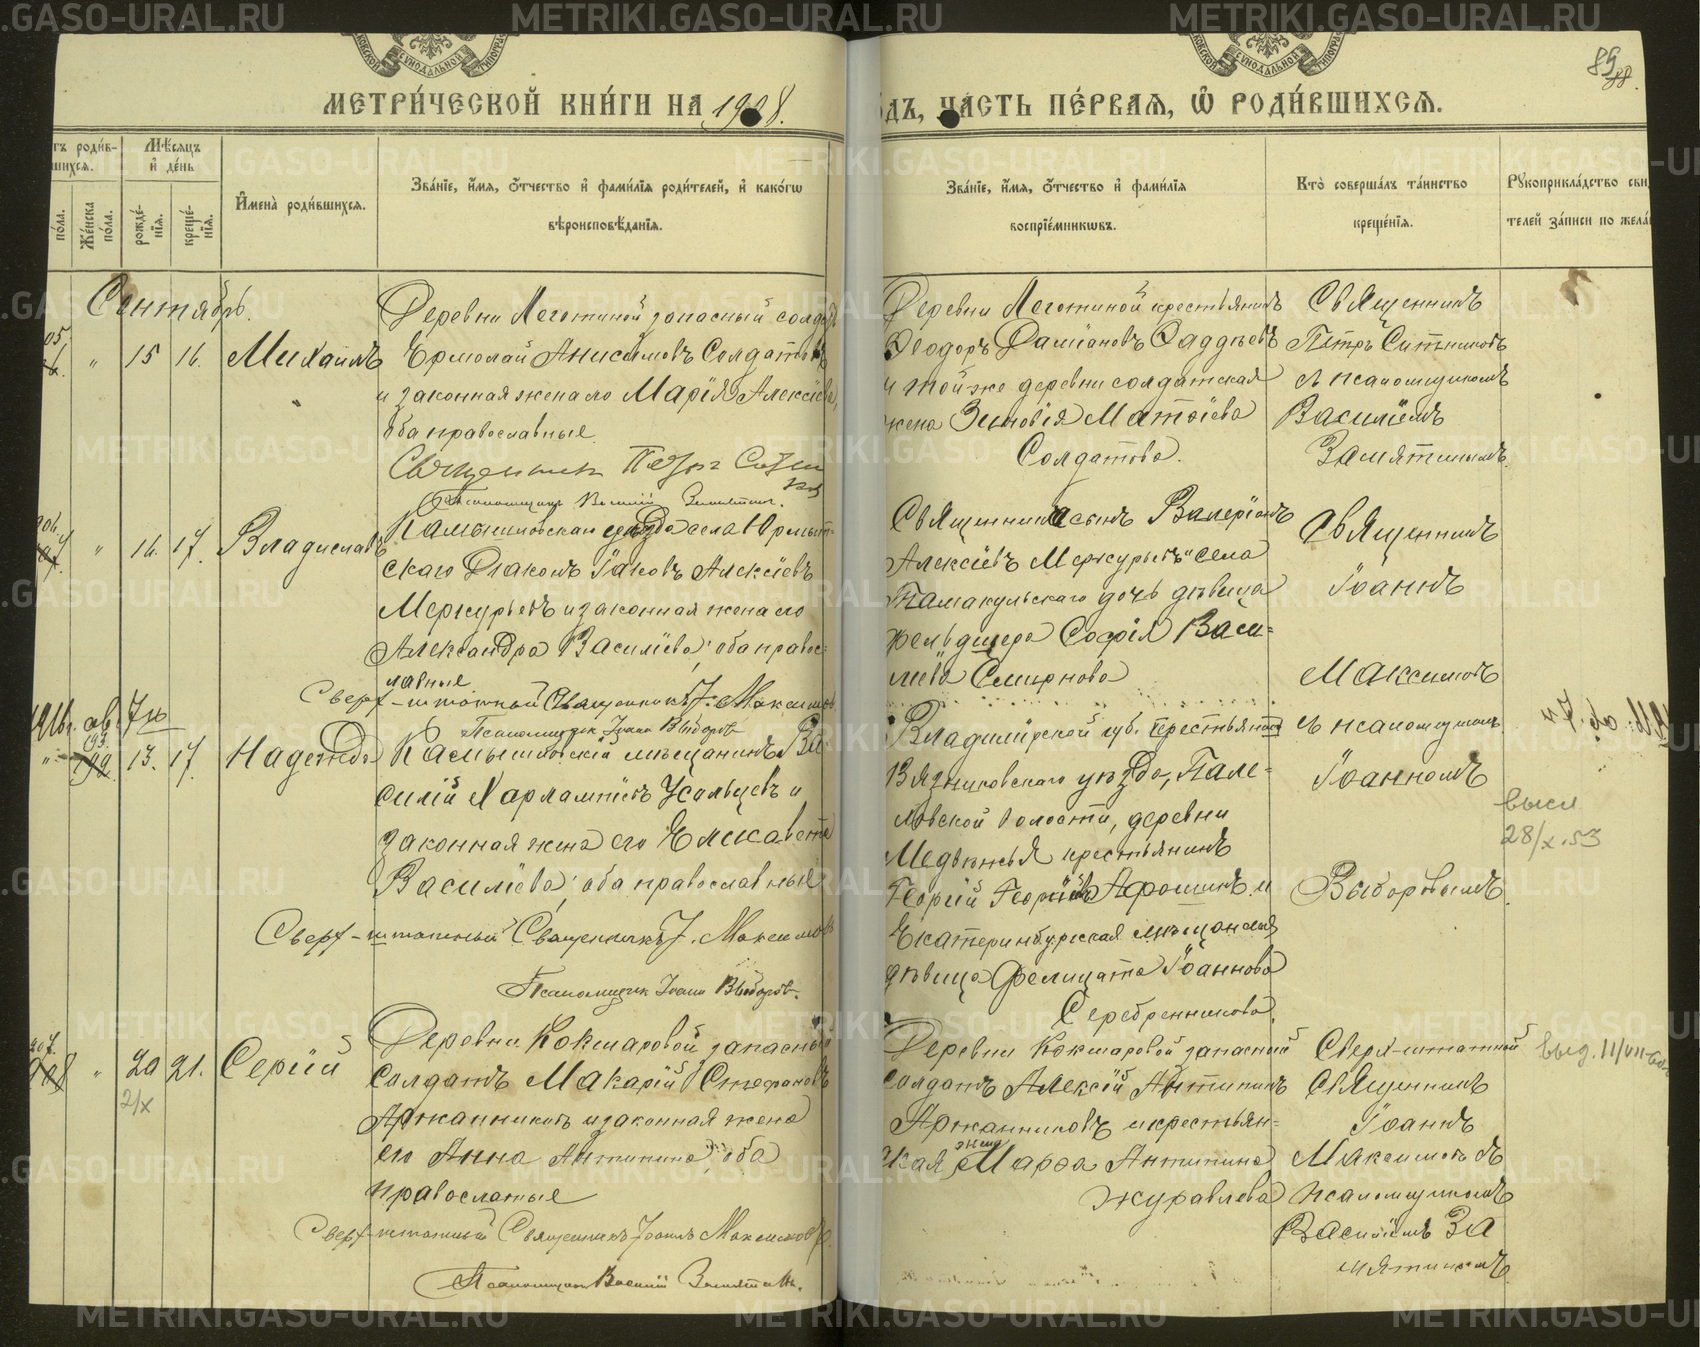 89
88.
МЕТРИ́ЧЕСКОЙ КНИ́ГИ НА 1908.
ДЪ, ЧА́СТЬ ПЕ́РВАЯ, Ѡ҆ РОДИ́ВШИХСЯ.
тъ роди́в-
шихся.
Мѣ́сяцъ
и҆ де́нь
по́ла.
Же́нска по́ла.
рожде́-
нїя.
креще́-
нїя.
И҆мена̀ роди́вшихся.
Зва́нїе, и҆́мя, ѻ҆́тчество и҆ фами́лїя роди́телей, и҆ како́гѡ
вѣроисповѣ́данїя.
Зва́нїе, и҆́мя, ѻ҆́тчество и҆ фами́лїя
воспрїе́мникѡвъ.
Кто̀ соверша́лъ та́инство
креще́нїя.
Рꙋкоприкла́дство сви
телей за́писи по жела
Сентябрь.
15 16. Михаилъ
Деревни Меготиной запасный солдатъ
Ермолай Анисимовъ Солдатовъ
и законная жена его Марія Алексіева,
оба православные.
Священник Петр Ситни
ков
Псаломщикъ Василій Замятин.
Деревни Меготиной крестьянинъ
Ѳеодоръ Даміановъ Ѳаддѣевъ
и той-же деревни солдатская
жена Зиновія Матѳіева
Солдатова.
Священникъ
Петръ Ситниковъ
съ псаломщикомъ
Василіемъ
Замятинымъ.
16. 17. Владиславъ
Камышловскаго уѣзда села Юрмыт-
скаго Діаконъ Іаковъ Алексіевъ
Меркурьевъ и законная жена его
Александра Василіева; оба правос-
лавные
Сверх-штатный Священникъ І. Максимов
Псаломщик Іоанн Выборов
Священника сынъ Валеріанъ
Алексіевъ Меркурьевъ и села
Тамакульскаго дочь дѣвица
фельдшера Софія Васи=
ліева Смирнова
Священникъ
Іоаннъ
Максимовъ
съ псаломщикомъ
Іоанномъ
Выборовымъ.
13. 17. Надежда
Камышловскій мѣщанинъ Ва-
силій Харлампіевъ Усольцевъ и
законная жена его Елисавета
Василіева; оба православные
Сверх-штатный Священникъ І. Максимовъ
Псаломщик Іоанн Выборов.
Владимірской губ. крестьянинъ
Вязниковскаго уѣзда, Пале-
ховской волости, деревни
Медвѣжья крестьянинъ
Георгій Георгіевъ Афошинъ и
Екатеринбургская мѣщанская
дѣвица Фелицата Іоаннова
Серебренникова.
высл
28/X.53
20 21. Сергій
2/X
Деревни Кокшаровой запасный
солдатъ Макарій Стефановъ
Аржанниковъ и законная жена
его Анна Антипина, оба
православные
Сверх-штатный Священникъ Іоаннъ Максимовъ.
Псаломщикъ Василій Замятинъ.
Деревни Кокшаровой запасный
солдатъ Алексій Антипинъ
Аржанниковъ и крестьян-
ская жена Марѳа Антипина
Журавлева
Сверх-штатный
Священникъ
Іоаннъ
Максимовъ съ
псаломщикомъ
Василіемъ За
мятинымъ
выд. 11/VII-60
METRIKI.GASO-URAL.RU